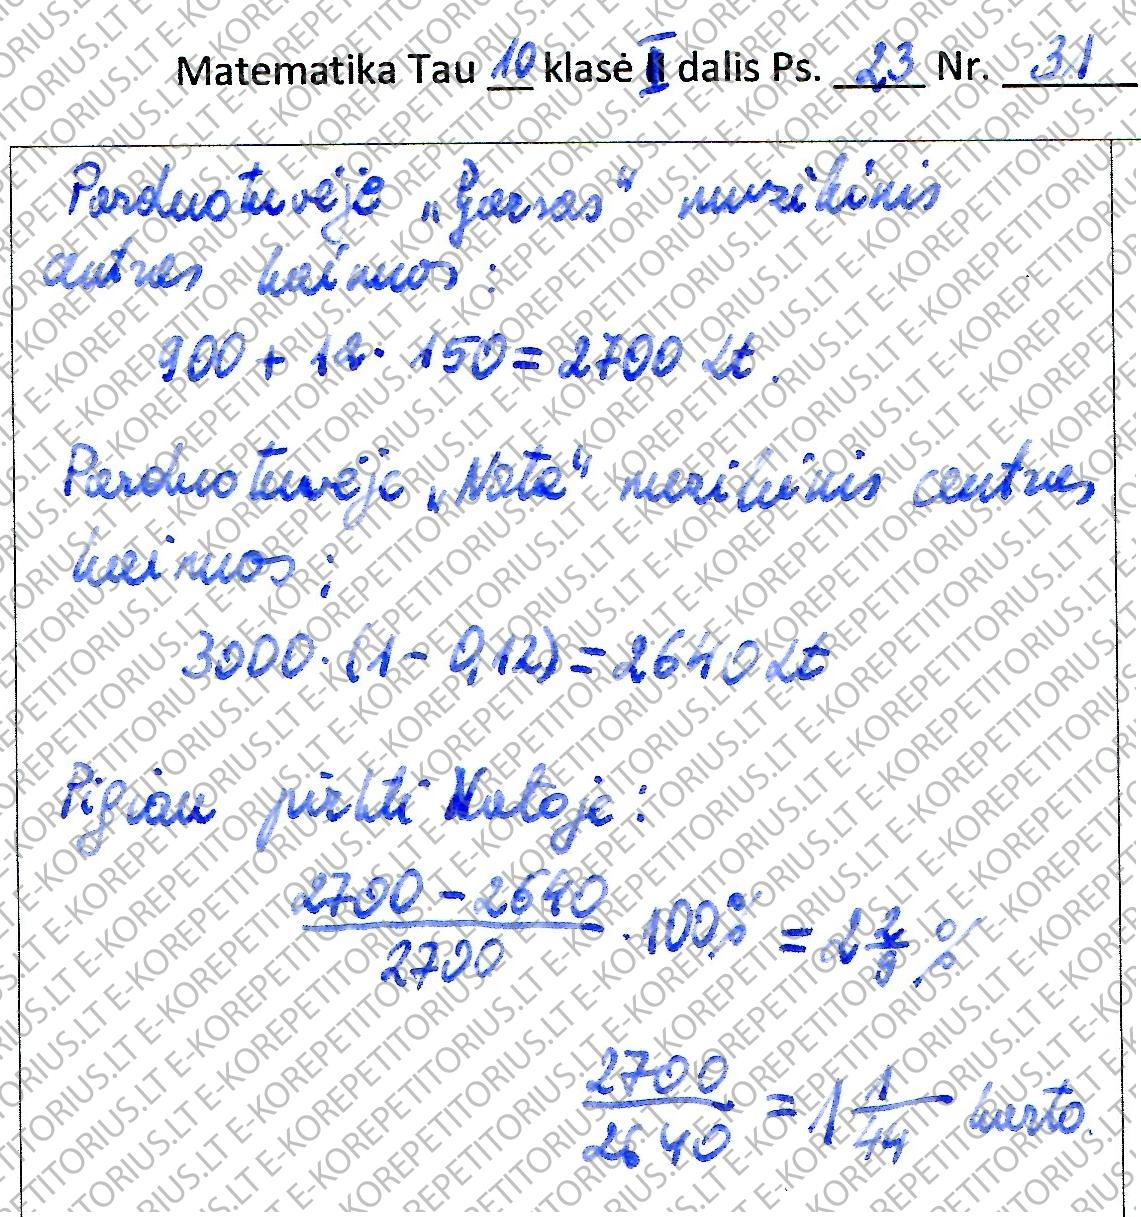 Matematika Tau 10 klasė I dalis Ps. 23 Nr. 31
Parduotuvėje „Garsas" muzikinis
centras kainuos:
900 + 12 · 150 = 2700 Lt.
Parduotuvėje „Nata" muzikinis centras
kainuos:
3000 · (1 - 0,12) = 2640 Lt
Pigiau pirkti Natoje:
2700 - 2640 / 2700 · 100% = 2 2/9 %
2700 / 2640 = 1 1/44 karto.
E-KOREPETITORIUS.LT